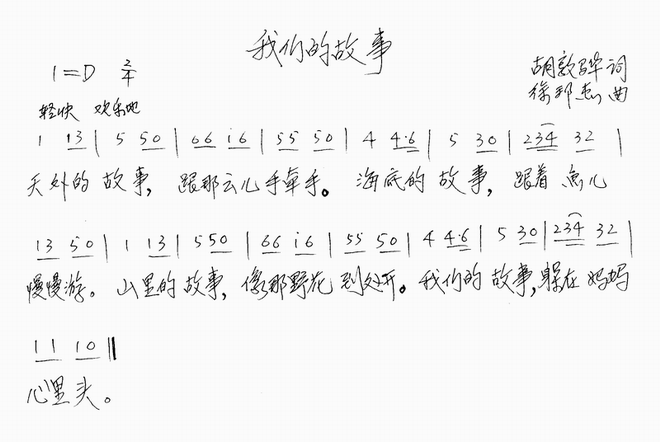 我们的故事
1=D 2/4
胡敦骅 词
徐邦杰 曲
轻快 欢乐地
1 13 | 5 50 | 66 i6 | 55 50 | 4 4·6 | 5 30 | 234 32 |
天外的 故事, 跟那云儿手牵手。 海底的 故事, 跟着 鱼儿
13 50 | 1 13 | 5 50 | 66 i6 | 55 50 | 4 4·6 | 5 30 | 234 32 |
慢慢游。 山里的 故事, 像那野花 到处开。 我们的 故事, 躲在 妈妈
11 10 ‖
心里头。